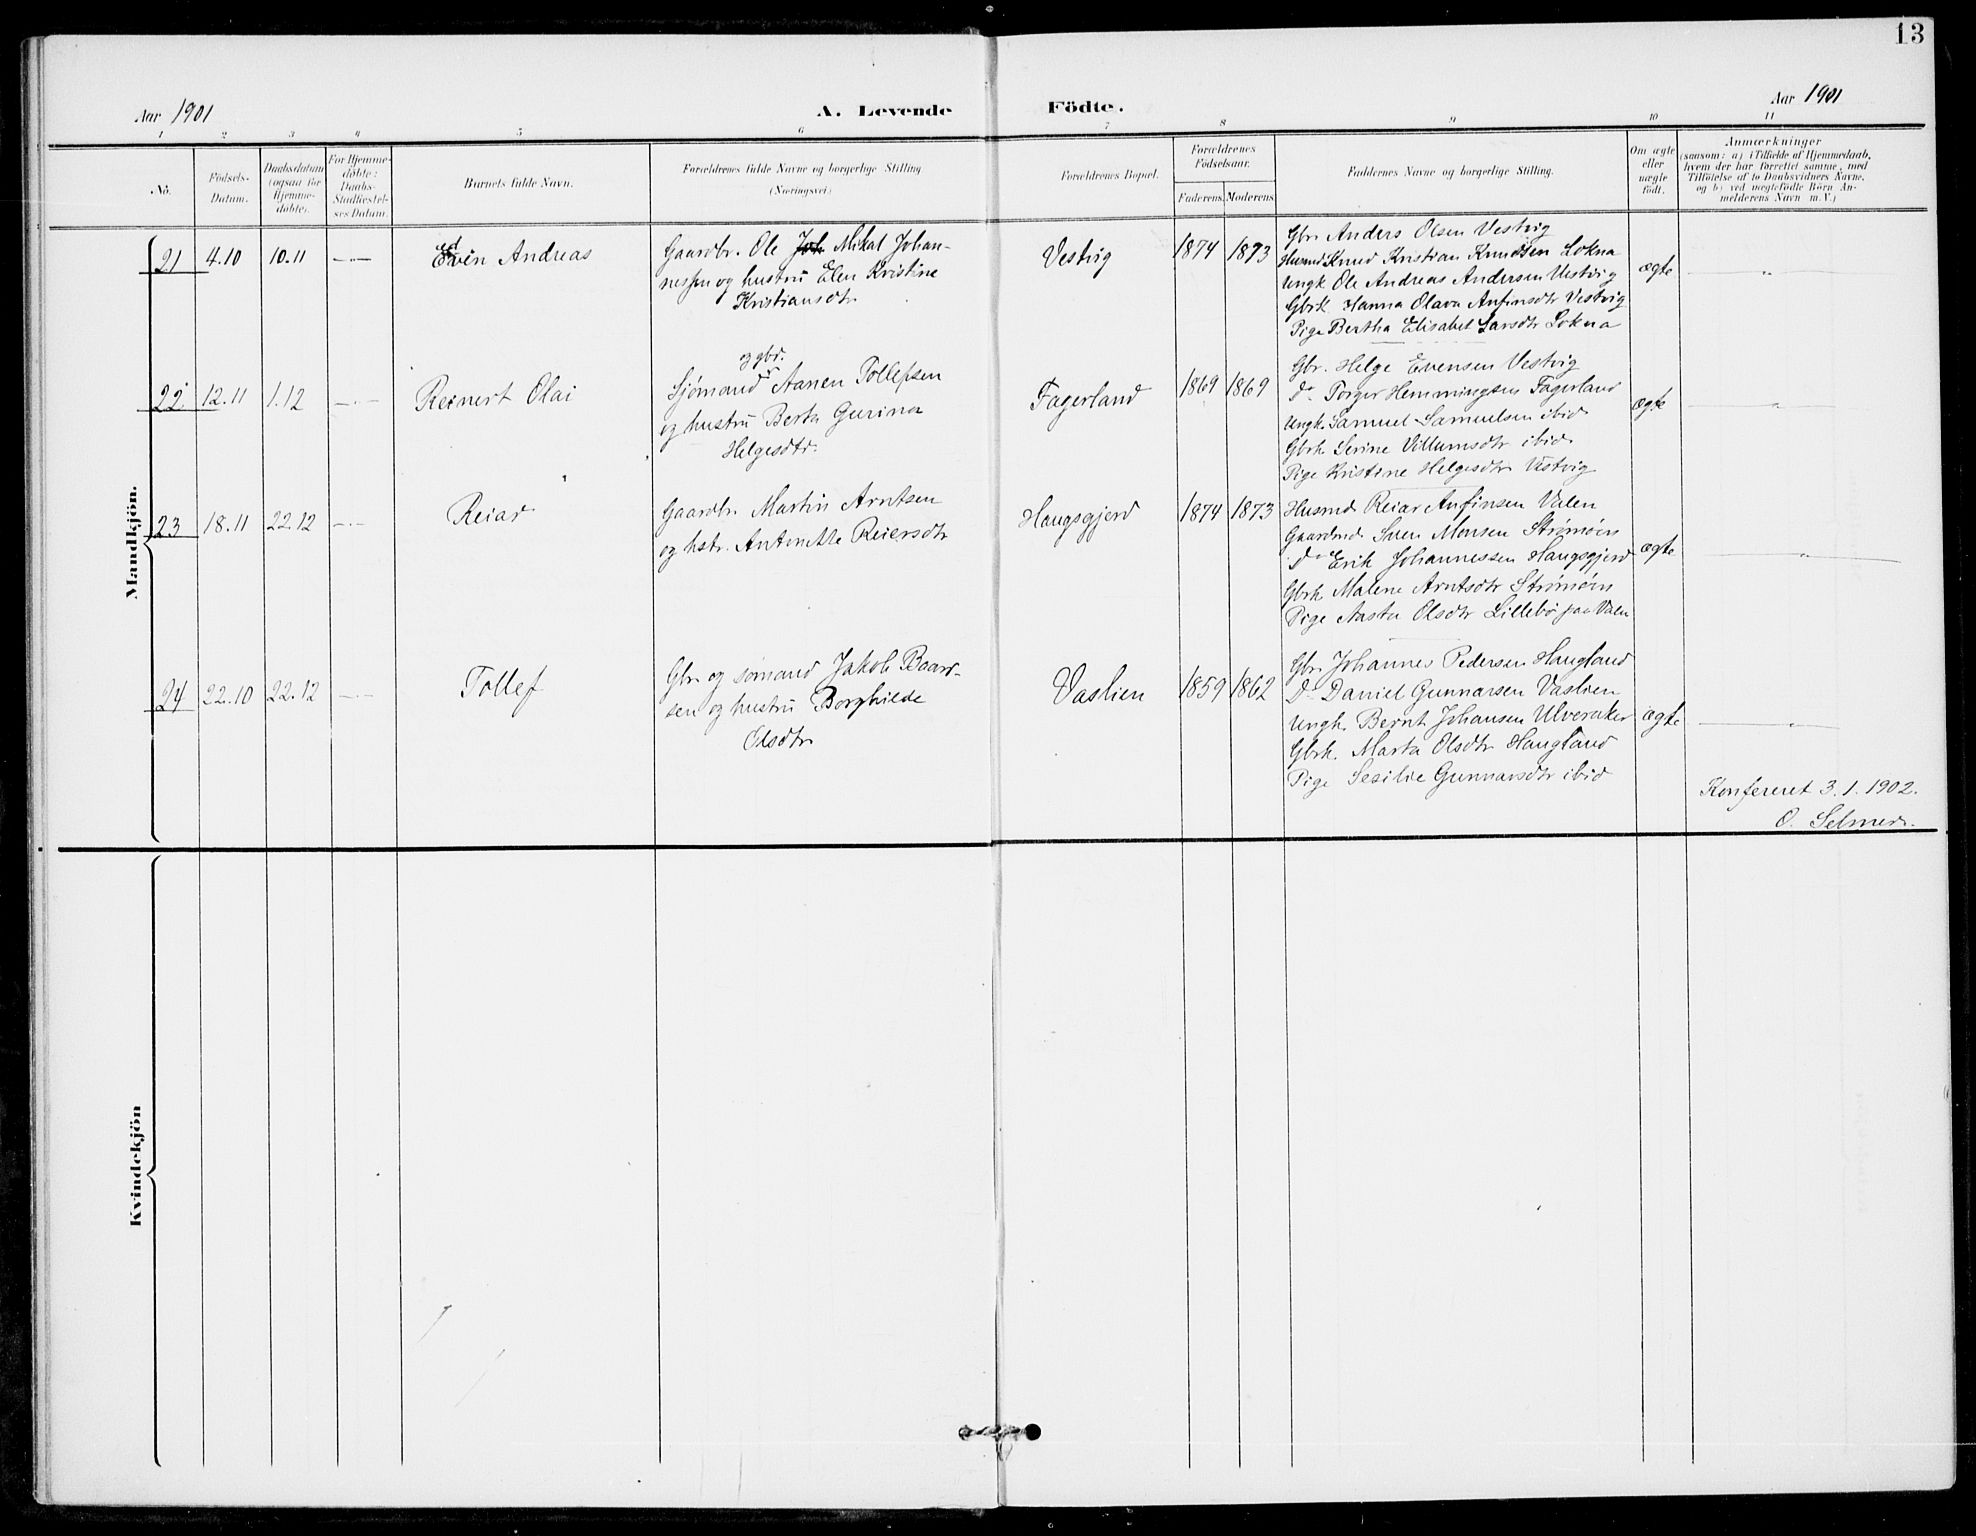 13
Aar 1901
A. Levende Födte.
Aar 1901
1 2 3 4 5 6 7 8 9 10 11
No.
Födsels-
Datum.
Daabsdatum
(ogsaa for
Hjemme-
döbte).
For Hjemme-
döbte:
Daabs-
Stadfæstel-
ses Datum.
Barnets fulde Navn.
Forældrenes fulde Navne og borgerlige Stilling
(Næringsvei)
Forældrenes Bopæl.
Forældrenes
Födselsaar.
Faderens. Moderens.
Faddernes Navne og borgerlige Stilling.
Om ægte
eller
uægte
födt.
Anmærkninger
(saasom: a) i Tilfælde af Hjemmedaab,
hvem der har forrettet samme, med
Tilföielse af to Daabsvidners Navne,
og b) ved uægtefödte Börn An-
melderens Navn m. V.)
Mandkjön.
21 4.10 10.11 —
Even Andreas
Gaardbr. Ole Joh Mikal Johan-
nessen og hustru Elen Kristine
Kristiansdtr
Vestvig
1874 1873
Gbr Anders Olsen Vestvig
Husmd Knud Kristian Knudsen Lokna
Ungk Ole Andreas Andersen Vestvig
Gbrk Hanna Olava Anfinsdtr Vestvig
Pige Bertha Elisabet Larsdtr Lokna
ægte
—„—
22 12.11 1.12 —
Reinert Olai
og gbr.
Sjømand Aanen Tollefsen
og hustru Berta Gurina
Helgesdtr.
Fagerland
1869 1869
Gbr. Helge Evensen Vestvig
do Torger Hemmingsen Fagerland
Ungk. Samuel Samuelsen ibid
Gbrk Serine Villumsdtr ibid
Pige Kristine Helgesdtr Vestvig
ægte
—„—
23 18.11 22.12 —
Reiar
Gaardbr. Martin Arntsen
og hstr. Antonette Reiersdtr
Haugsgjerd
1874 1873
Husmd Reiar Anfinsen Valen
Gaardmd. Sven Monsen Strømøin
do Erik Johannessen Haugsgjerd
Gbrk Malene Arntsdtr Strømøin
Pige Aasta Olsdtr Lillebø paa Valen
ægte
—„—
24 22.10 22.12 —
Tollef
Gbr. og sømand Jakob Baard-
sen og hustru Borghilde
Olsdtr
Vaslien
1859 1862
Gbr. Johannes Pedersen Haugland
Do Daniel Gunnarsen Vaslien
Ungk. Bernt Johansen Ulveraker
Gbrk. Marta Olsdtr Haugland
Pige Sesilie Gunnarsdtr ibid
ægte
—„—
Konfereret 3.1.1902.
O. Selmer.
Kvindekjön